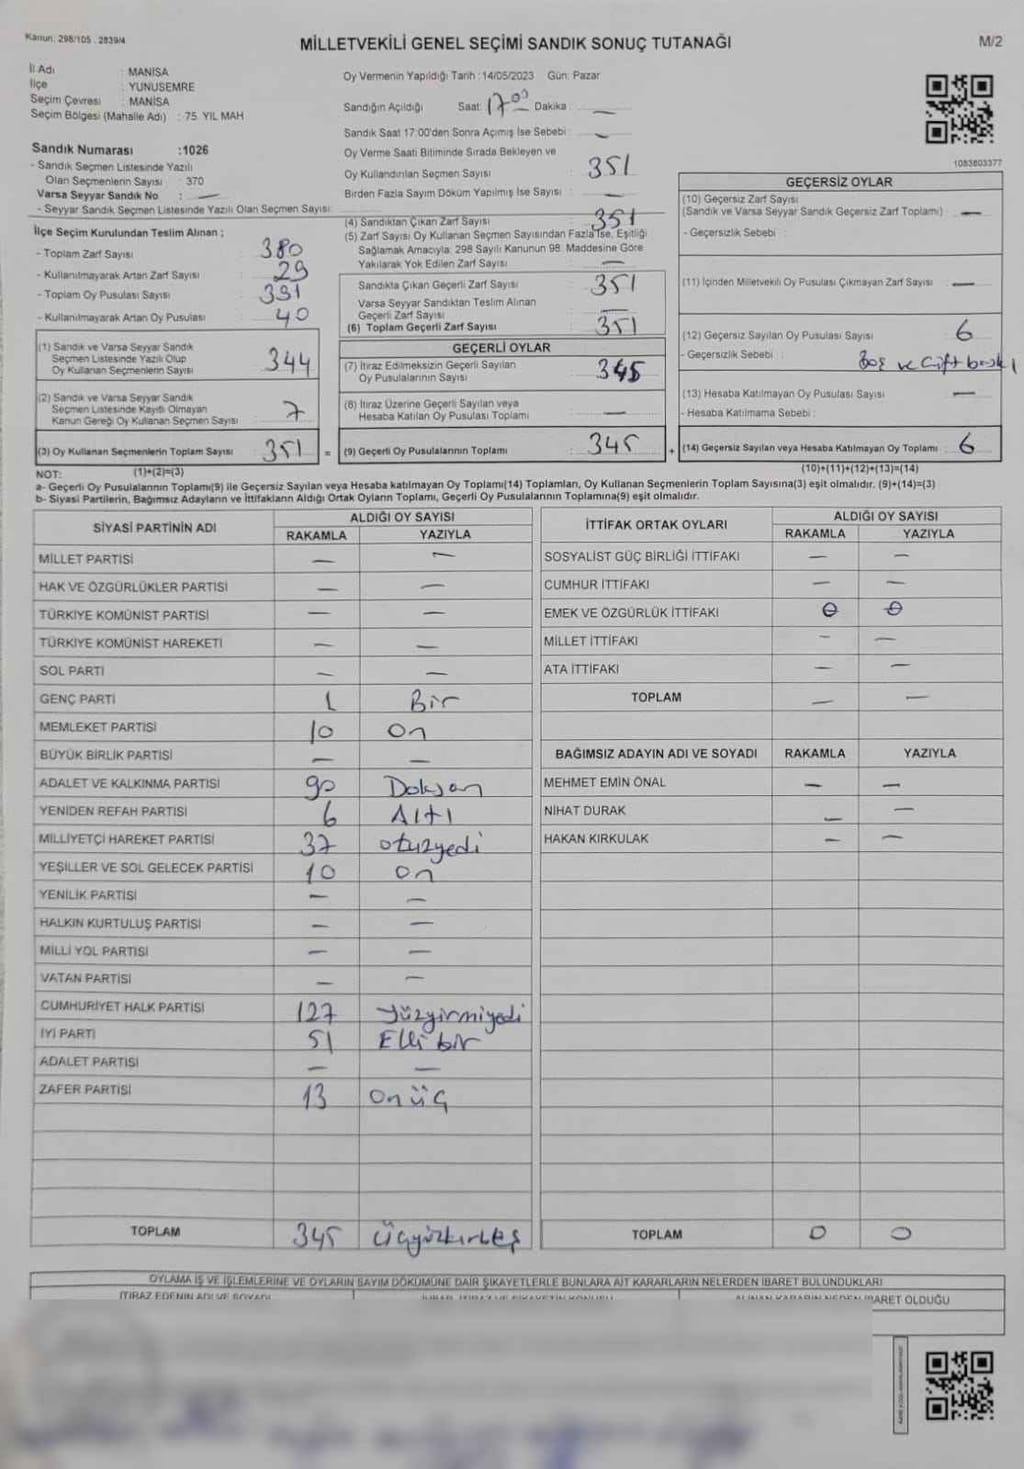 Kanun: 298/105 . 2839/4
MİLLETVEKİLİ GENEL SEÇİMİ SANDIK SONUÇ TUTANAĞI
M/2
İl Adı : MANİSA
İlçe : YUNUSEMRE
Seçim Çevresi : MANİSA
Seçim Bölgesi (Mahalle Adı) : 75. YIL MAH
Sandık Numarası :1026
- Sandık Seçmen Listesinde Yazılı
Olan Seçmenlerin Sayısı : 370
Varsa Seyyar Sandık No : —
- Seyyar Sandık Seçmen Listesinde Yazılı Olan Seçmen Sayısı
İlçe Seçim Kurulundan Teslim Alınan ;
- Toplam Zarf Sayısı : 380
- Kullanılmayarak Artan Zarf Sayısı : 29
- Toplam Oy Pusulası Sayısı : 391
- Kullanılmayarak Artan Oy Pusulası : 40
(1) Sandık ve Varsa Seyyar Sandık
Seçmen Listesinde Yazılı Olup
Oy Kullanan Seçmenlerin Sayısı 344
(2) Sandık ve Varsa Seyyar Sandık
Seçmen Listesinde Kayıtlı Olmayan
Kanun Gereği Oy Kullanan Seçmen Sayısı 7
(3) Oy Kullanan Seçmenlerin Toplam Sayısı 351 =
(1)+(2)=(3)
Oy Vermenin Yapıldığı Tarih :14/05/2023 Gün: Pazar
Sandığın Açıldığı Saat: 17 00 Dakika : —
Sandık Saat 17:00'den Sonra Açılmış İse Sebebi : —
Oy Verme Saati Bitiminde Sırada Bekleyen ve
Oy Kullandırılan Seçmen Sayısı : 351
Birden Fazla Sayım Döküm Yapılmış İse Sayısı : —
(4) Sandıktan Çıkan Zarf Sayısı : 351
(5) Zarf Sayısı Oy Kullanan Seçmen Sayısından Fazla İse, Eşitliği
Sağlamak Amacıyla; 298 Sayılı Kanunun 98. Maddesine Göre
Yakılarak Yok Edilen Zarf Sayısı : —
Sandıkta Çıkan Geçerli Zarf Sayısı : 351
Varsa Seyyar Sandıktan Teslim Alınan
Geçerli Zarf Sayısı :
(6) Toplam Geçerli Zarf Sayısı : 351
GEÇERLİ OYLAR
(7) İtiraz Edilmeksizin Geçerli Sayılan
Oy Pusulalarının Sayısı 345
(8) İtiraz Üzerine Geçerli Sayılan veya
Hesaba Katılan Oy Pusulası Toplamı —
(9) Geçerli Oy Pusulalarının Toplamı 345 +
1083803377
GEÇERSİZ OYLAR
(10) Geçersiz Zarf Sayısı
(Sandık ve Varsa Seyyar Sandık Geçersiz Zarf Toplamı) : —
- Geçersizlik Sebebi :
(11) İçinden Milletvekili Oy Pusulası Çıkmayan Zarf Sayısı —
(12) Geçersiz Sayılan Oy Pusulası Sayısı 6
- Geçersizlik Sebebi : Boş ve Çift baskı
(13) Hesaba Katılmayan Oy Pusulası Sayısı —
- Hesaba Katılmama Sebebi :
(14) Geçersiz Sayılan veya Hesaba Katılmayan Oy Toplamı 6
(10)+(11)+(12)+(13)=(14)
NOT:
a- Geçerli Oy Pusulalarının Toplamı(9) ile Geçersiz Sayılan veya Hesaba katılmayan Oy Toplamı(14) Toplamları, Oy Kullanan Seçmenlerin Toplam Sayısına(3) eşit olmalıdır. (9)+(14)=(3)
b- Siyasi Partilerin, Bağımsız Adayların ve İttifakların Aldığı Ortak Oyların Toplamı, Geçerli Oy Pusulalarının Toplamına(9) eşit olmalıdır.
SİYASİ PARTİNİN ADI ALDIĞI OY SAYISI
RAKAMLA YAZIYLA
MİLLET PARTİSİ — —
HAK VE ÖZGÜRLÜKLER PARTİSİ — —
TÜRKİYE KOMÜNİST PARTİSİ — —
TÜRKİYE KOMÜNİST HAREKETİ — —
SOL PARTİ — —
GENÇ PARTİ 1 Bir
MEMLEKET PARTİSİ 10 On
BÜYÜK BİRLİK PARTİSİ — —
ADALET VE KALKINMA PARTİSİ 90 Doksan
YENİDEN REFAH PARTİSİ 6 Altı
MİLLİYETÇİ HAREKET PARTİSİ 37 otuzyedi
YEŞİLLER VE SOL GELECEK PARTİSİ 10 On
YENİLİK PARTİSİ — —
HALKIN KURTULUŞ PARTİSİ — —
MİLLİ YOL PARTİSİ — —
VATAN PARTİSİ — —
CUMHURİYET HALK PARTİSİ 127 Yüzyirmiyedi
İYİ PARTİ 51 Elli bir
ADALET PARTİSİ — —
ZAFER PARTİSİ 13 On üç
TOPLAM 345 Üçyüzkırkbeş
İTTİFAK ORTAK OYLARI ALDIĞI OY SAYISI
RAKAMLA YAZIYLA
SOSYALİST GÜÇ BİRLİĞİ İTTİFAKI — —
CUMHUR İTTİFAKI — —
EMEK VE ÖZGÜRLÜK İTTİFAKI 0 0
MİLLET İTTİFAKI — —
ATA İTTİFAKI — —
TOPLAM — —
BAĞIMSIZ ADAYIN ADI VE SOYADI RAKAMLA YAZIYLA
MEHMET EMİN ÖNAL — —
NİHAT DURAK — —
HAKAN KIRKULAK — —
TOPLAM 0 0
OYLAMA İŞ VE İŞLEMLERİNE VE OYLARIN SAYIM DÖKÜMÜNE DAİR ŞİKAYETLERLE BUNLARA AİT KARARLARIN NELERDEN İBARET BULUNDUKLARI
İTİRAZ EDENİN ADI VE SOYADI
ALINAN KARARIN NEDEN İBARET OLDUĞU